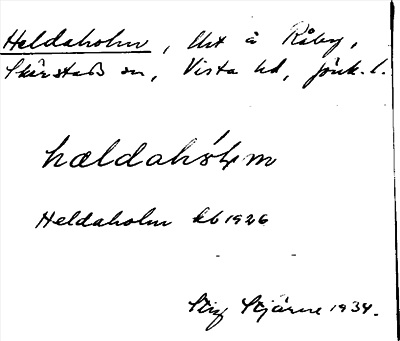 Heldaholm, lht å Råby,
Skärstads sn, Vista hd, Jönk. l.
hældahólm
Heldaholm kb 1926
Stig Stjärne 1934.